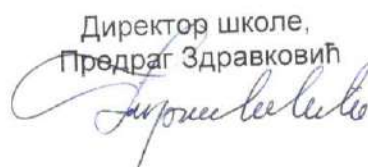 Директор школе,
Предраг Здравковић